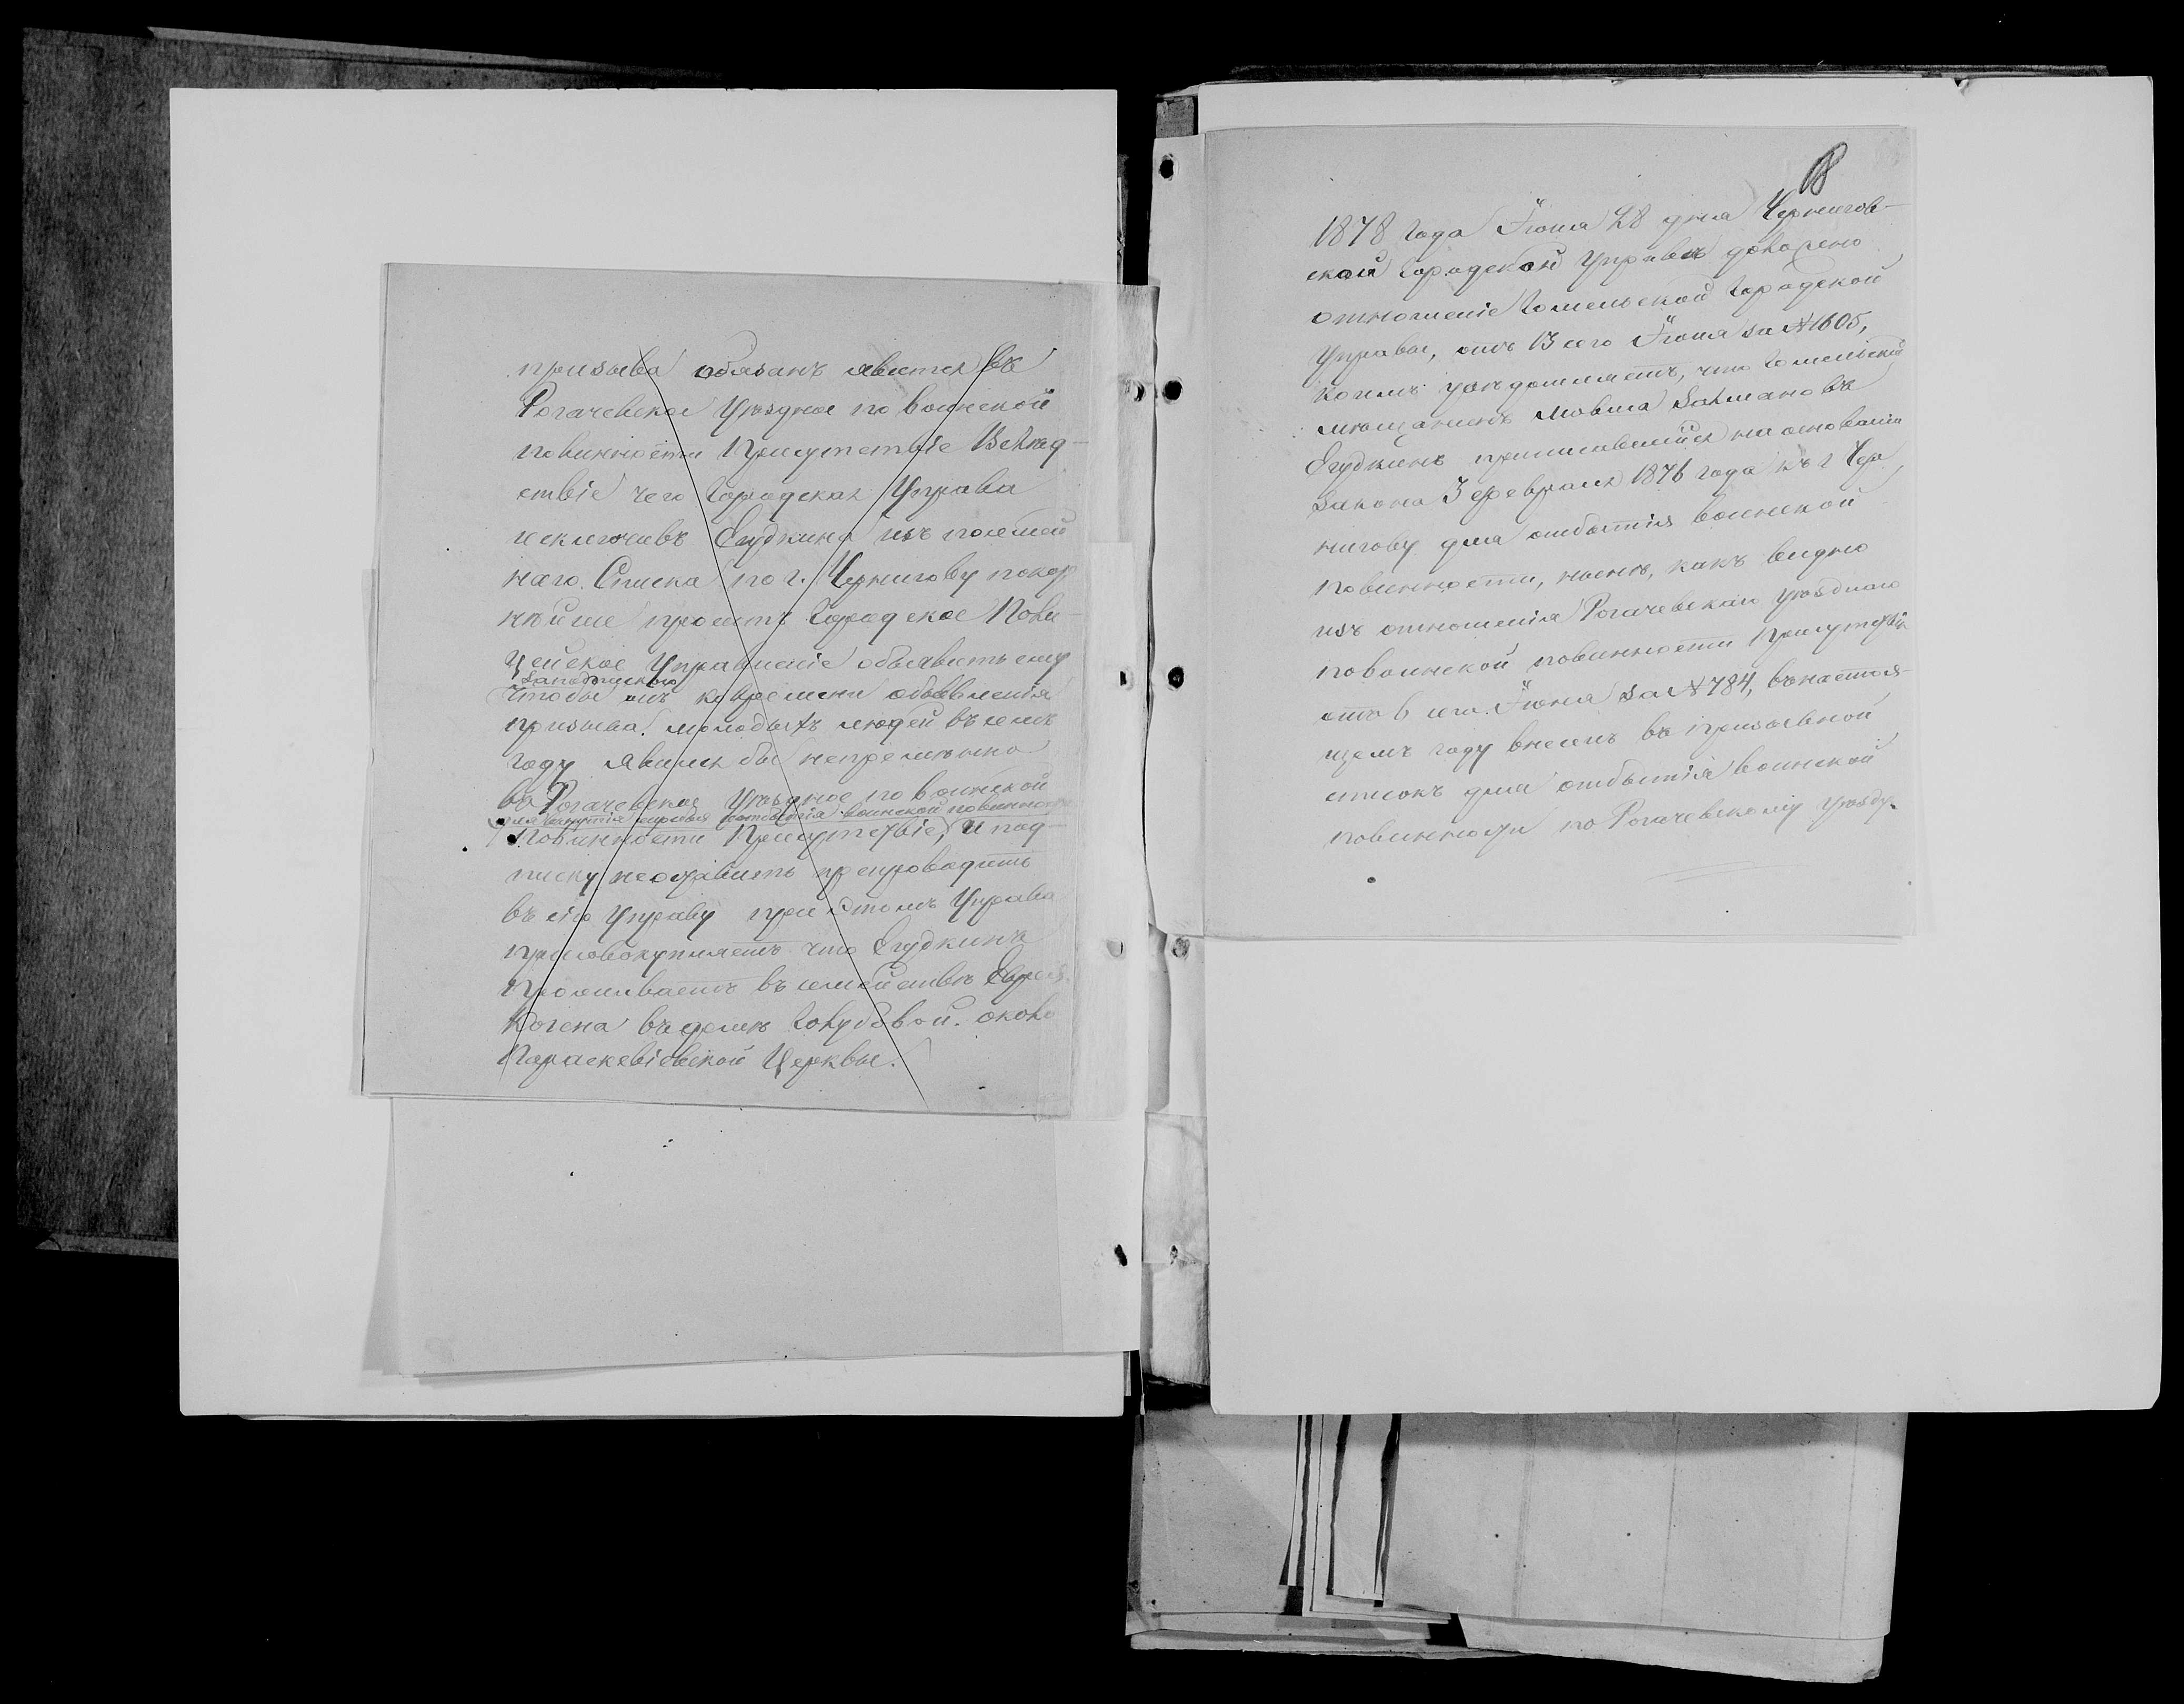 призыва обязанъ явится въ
Рогачевское Уѣздное по воинской
повинности Присутствіе Вслѣд-
ствіе чего Городская Управа
исключивъ Егудкина изъ посемей
наго. Списка по г. Чернигову покор
нѣйше проситъ Городское Поли-
цейское Управленіе объявить ему
заподпискою
чтобы онъ ко времени объявленія
призыва молодыхъ людей въ семъ
году явился бы непремѣнно
въ Рогачевское Уѣздное по воинской
для вынутія жребія и отбытія воинской повинности
повинности Присутствіе, и под-
писку неоставить препроводить
въ сію Управу при этомъ Управа
присовокупляетъ что Егудкинъ
проживаетъ въ семействѣ Еврея
Когена въ домѣ Голубовой. около
Параскевіевской Церквы.
18
1878 года Іюня 28 дня Чернигов-
ской Городской Управѣ доложено
отношеніе Гомельской Городской
Управы, отъ 13 сего Іюня за № 1605,
коимъ увѣдомляетъ, что Гомельскій
мѣщанинъ Мовша Залмановъ
Егудкинъ приписавшійся на основаніи
Закона 3 февраля 1876 года къ г. Чер
нигову для отбытія воинской
повинности, нынѣ, какъ видно
изъ отношенія Рогачевскаго уѣзднаго
по воинской повинности Присутствія
отъ 6 сего Іюня за № 784, въ настоя-
щемъ году внесенъ въ призывной
списокъ для отбытія воинской
повинности по Рогачевскому уѣзду.